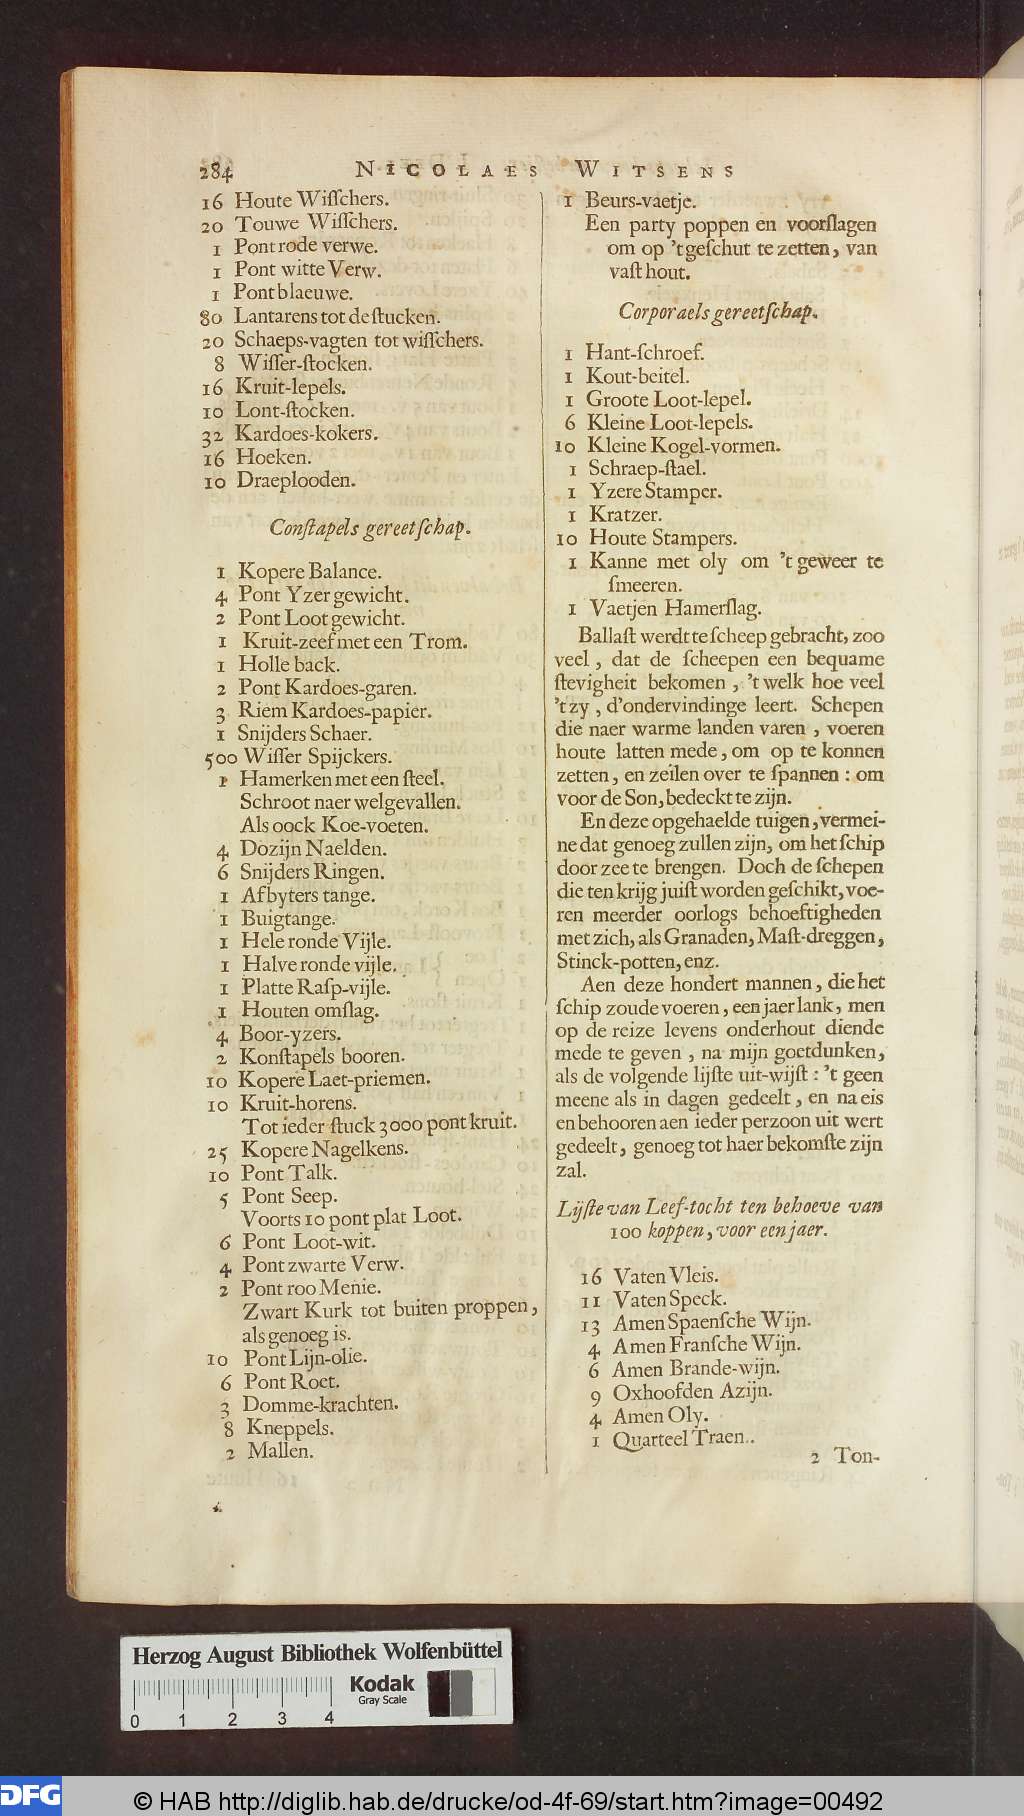 284 NICOLAES WITSENS
16 Houte Wiſſchers.
20 Touwe Wiſſchers.
1 Pont rode verwe.
1 Pont witte Verw.
1 Pont blaeuwe.
80 Lantarens tot de ſtucken.
20 Schaeps-vagten tot wiſſchers.
8 Wiſſer-ſtocken.
16 Kruit-lepels.
10 Lont-ſtocken.
32 Kardoes-kokers.
16 Hoeken.
10 Draeplooden.
Conſtapels gereetſchap.
1 Kopere Balance.
4 Pont Yzer gewicht.
2 Pont Loot gewicht.
1 Kruit-zeef met een Trom.
1 Holle back.
2 Pont Kardoes-garen.
3 Riem Kardoes-papier.
1 Snijders Schaer.
500 Wiſſer Spijckers.
1 Hamerken met een ſteel.
Schroot naer welgevallen.
Als oock Koe-voeten.
4 Dozijn Naelden.
6 Snijders Ringen.
1 Afbyters tange.
1 Buigtange.
1 Hele ronde Vijle.
1 Halve ronde vijle.
1 Platte Raſp-vijle.
1 Houten omſlag.
4 Boor-yzers.
2 Konſtapels booren.
10 Kopere Laet-priemen.
10 Kruit-horens.
Tot ieder ſtuck 3000 pont kruit.
25 Kopere Nagelkens.
10 Pont Talk.
5 Pont Seep.
Voorts 10 pont plat Loot.
6 Pont Loot-wit.
4 Pont zwarte Verw.
2 Pont roo Menie.
Zwart Kurk tot buiten proppen,
als genoeg is.
10 Pont Lijn-olie.
6 Pont Roet.
3 Domme-krachten.
8 Kneppels.
2 Mallen.
1 Beurs-vaetje.
Een party poppen en voorſlagen
om op 't geſchut te zetten, van
vaſt hout.
Corporaels gereetſchap.
1 Hant-ſchroef.
1 Kout-beitel.
1 Groote Loot-lepel.
6 Kleine Loot-lepels.
10 Kleine Kogel-vormen.
1 Schraep-ſtael.
1 Yzere Stamper.
1 Kratzer.
10 Houte Stampers.
1 Kanne met oly om 't geweer te
ſmeeren.
1 Vaetjen Hamerſlag.
Ballaſt werdt te ſcheep gebracht, zoo
veel, dat de ſcheepen een bequame
ſtevigheit bekomen, 't welk hoe veel
't zy, d'ondervindinge leert. Schepen
die naer warme landen varen, voeren
houte latten mede, om op te konnen
zetten, en zeilen over te ſpannen: om
voor de Son, bedeckt te zijn.
En deze opgehaelde tuigen, vermei-
ne dat genoeg zullen zijn, om het ſchip
door zee te brengen. Doch de ſchepen
die ten krijg juiſt worden geſchikt, voe-
ren meerder oorlogs behoeftigheden
met zich, als Granaden, Maſt-dreggen,
Stinck-potten, enz.
Aen deze hondert mannen, die het
ſchip zoude voeren, een jaer lank, men
op de reize levens onderhout diende
mede te geven, na mijn goetdunken,
als de volgende lijſte uit-wijſt: 't geen
meene als in dagen gedeelt, en na eis
en behooren aen ieder perzoon uit wert
gedeelt, genoeg tot haer bekomſte zijn
zal.
Lijſte van Leef-tocht ten behoeve van
100 koppen, voor een jaer.
16 Vaten Vleis.
11 Vaten Speck.
13 Amen Spaenſche Wijn.
4 Amen Franſche Wijn.
6 Amen Brande-wijn.
9 Oxhoofden Azijn.
4 Amen Oly.
1 Quarteel Traen.
2 Ton-
Herzog August Bibliothek Wolfenbüttel
Kodak
Gray Scale
0 1 2 3 4
DFG © HAB http://diglib.hab.de/drucke/od-4f-69/start.htm?image=00492